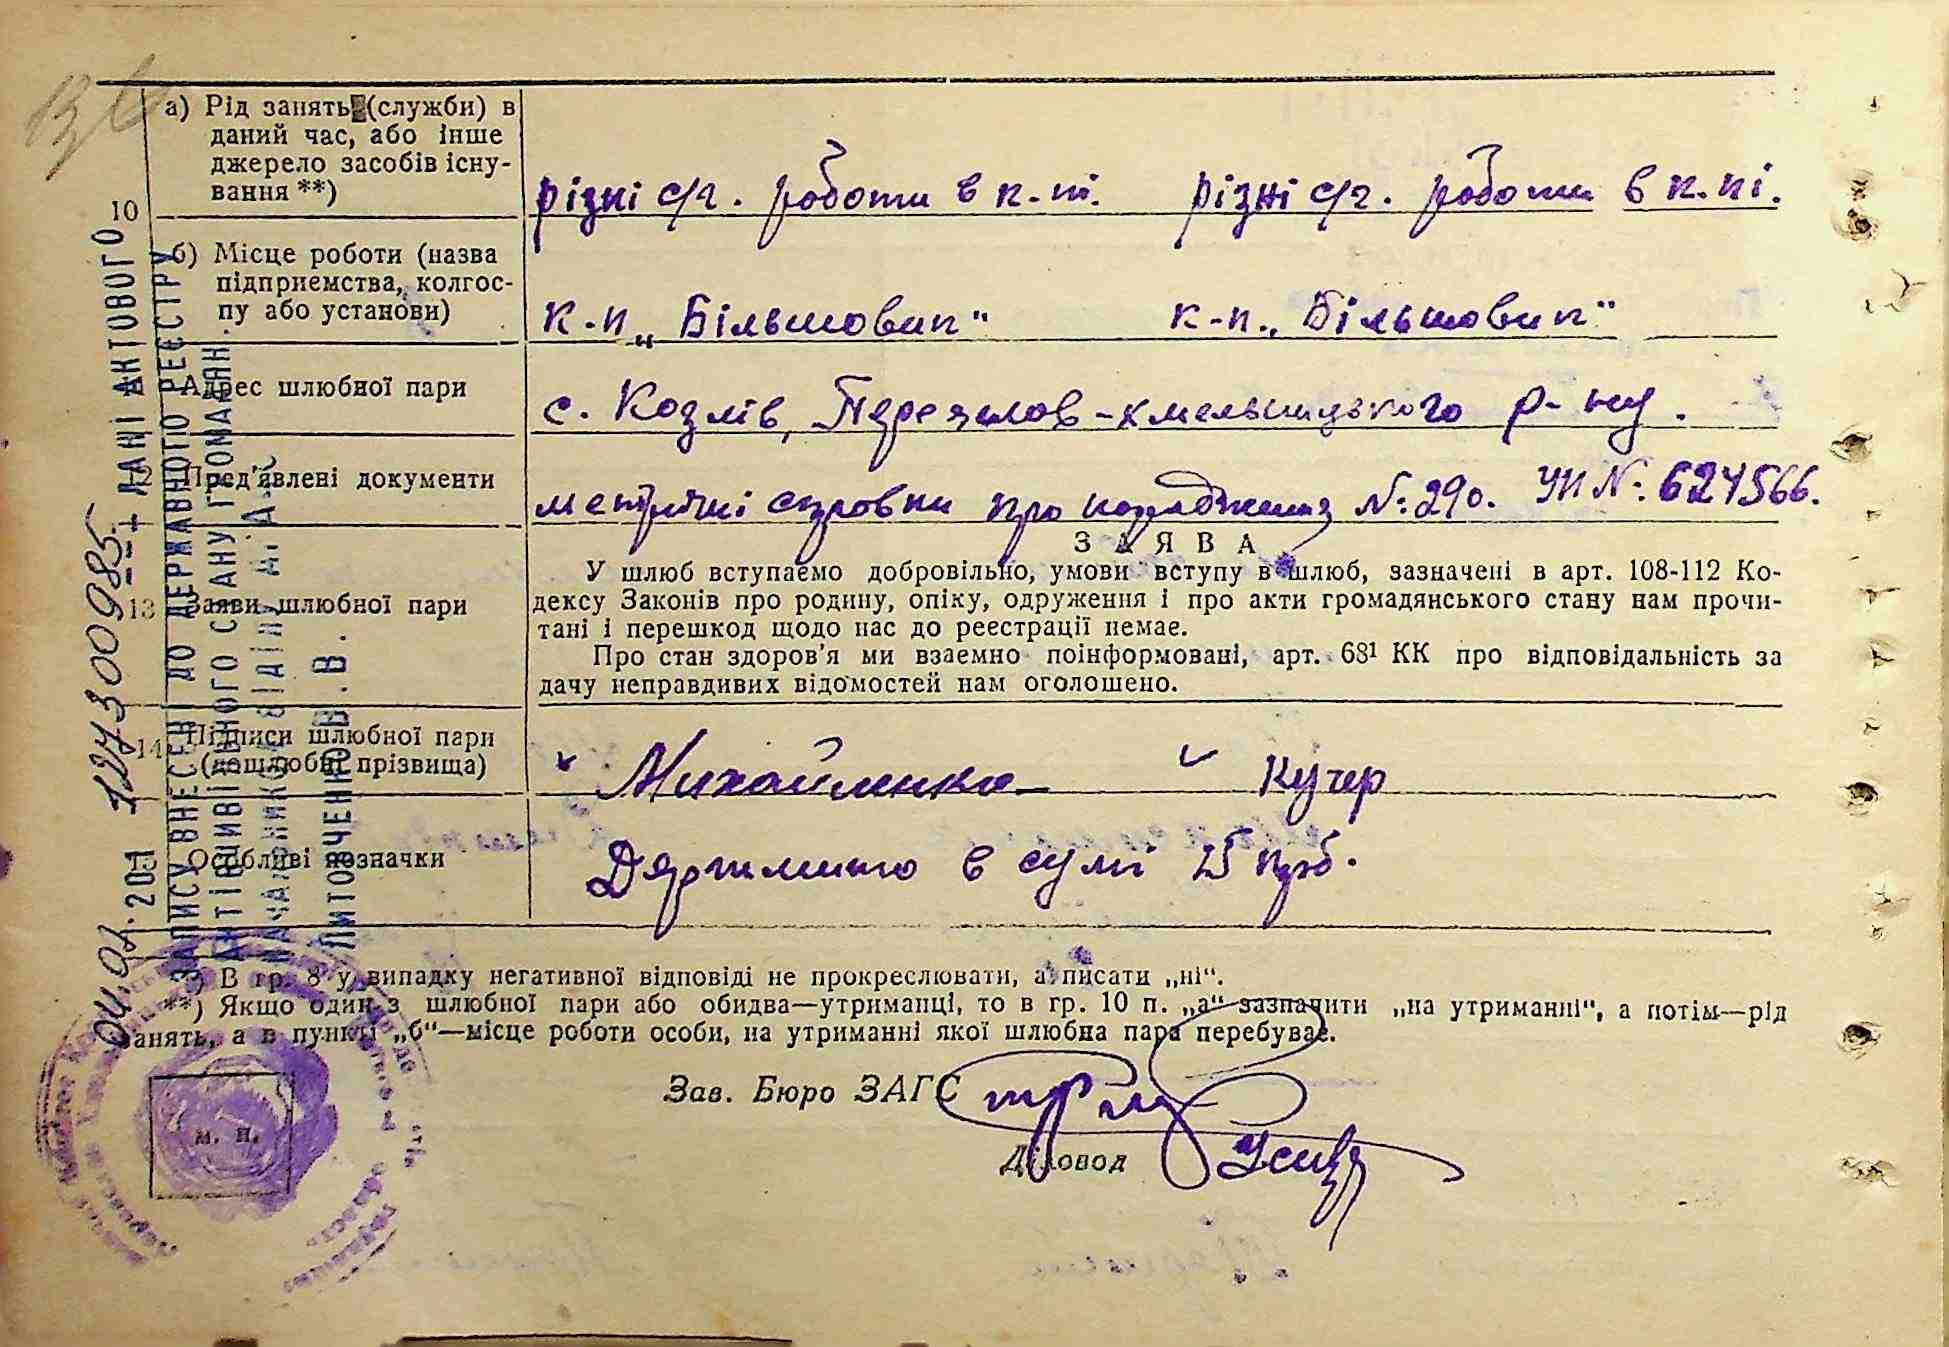 а) Рід занять (служби) в
даний час, або інше
джерело засобів існу-
вання **)
10
різні с/г. роботи в к-пі. різні с/г. роботи в к.пі.
б) Місце роботи (назва
підприємства, колгос-
пу або установи)
к-п „Більшовик" к-п. „Більшовик"
Адрес шлюбної пари
с. Козлів, Переяслов-Хмельницького р-ну.
12 Пред'явлені документи
метричні справки про народження №: 290. УП №: 624566.
ЗАЯВА
У шлюб вступаємо добровільно, умови вступу в шлюб, зазначені в арт. 108-112 Ко-
дексу Законів про родину, опіку, одруження і про акти громадянського стану нам прочи-
тані і перешкод щодо нас до реєстрації немає.
13 Заяви шлюбної пари
Про стан здоров'я ми взаємно поінформовані, арт. 68¹ КК про відповідальність за
дачу неправдивих відомостей нам оголошено.
14 Підписи шлюбної пари
(дошлюбні прізвища)
Михайленко Кучер
15 Особливі позначки
Держмито в сумі 15 крб.
*) В гр. 8 у випадку негативної відповіді не прокреслювати, а писати „ні".
**) Якщо один з шлюбної пари або обидва—утриманці, то в гр. 10 п. „а" зазначити „на утриманні", а потім—рід
занять, а в пункті „б"—місце роботи особи, на утриманні якої шлюбна пара перебуває.
Зав. Бюро ЗАГС
Діловод
м. п.
ДАНІ АКТОВОГО
ЗАПИСУ ВНЕСЕНІ ДО ДЕРЖАВНОГО РЕЄСТРУ
АКТІВ ЦИВІЛЬНОГО СТАНУ ГРОМАДЯН.
НАЧАЛЬНИК ВІДДІЛУ
ЛИТОВЧЕНКО В.В.